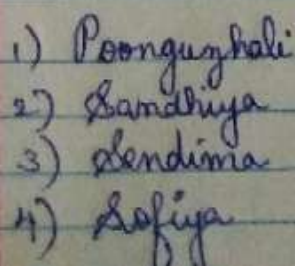 1) Poonguzhali
2) Sandhiya
3) Sendima
4) Sofiya